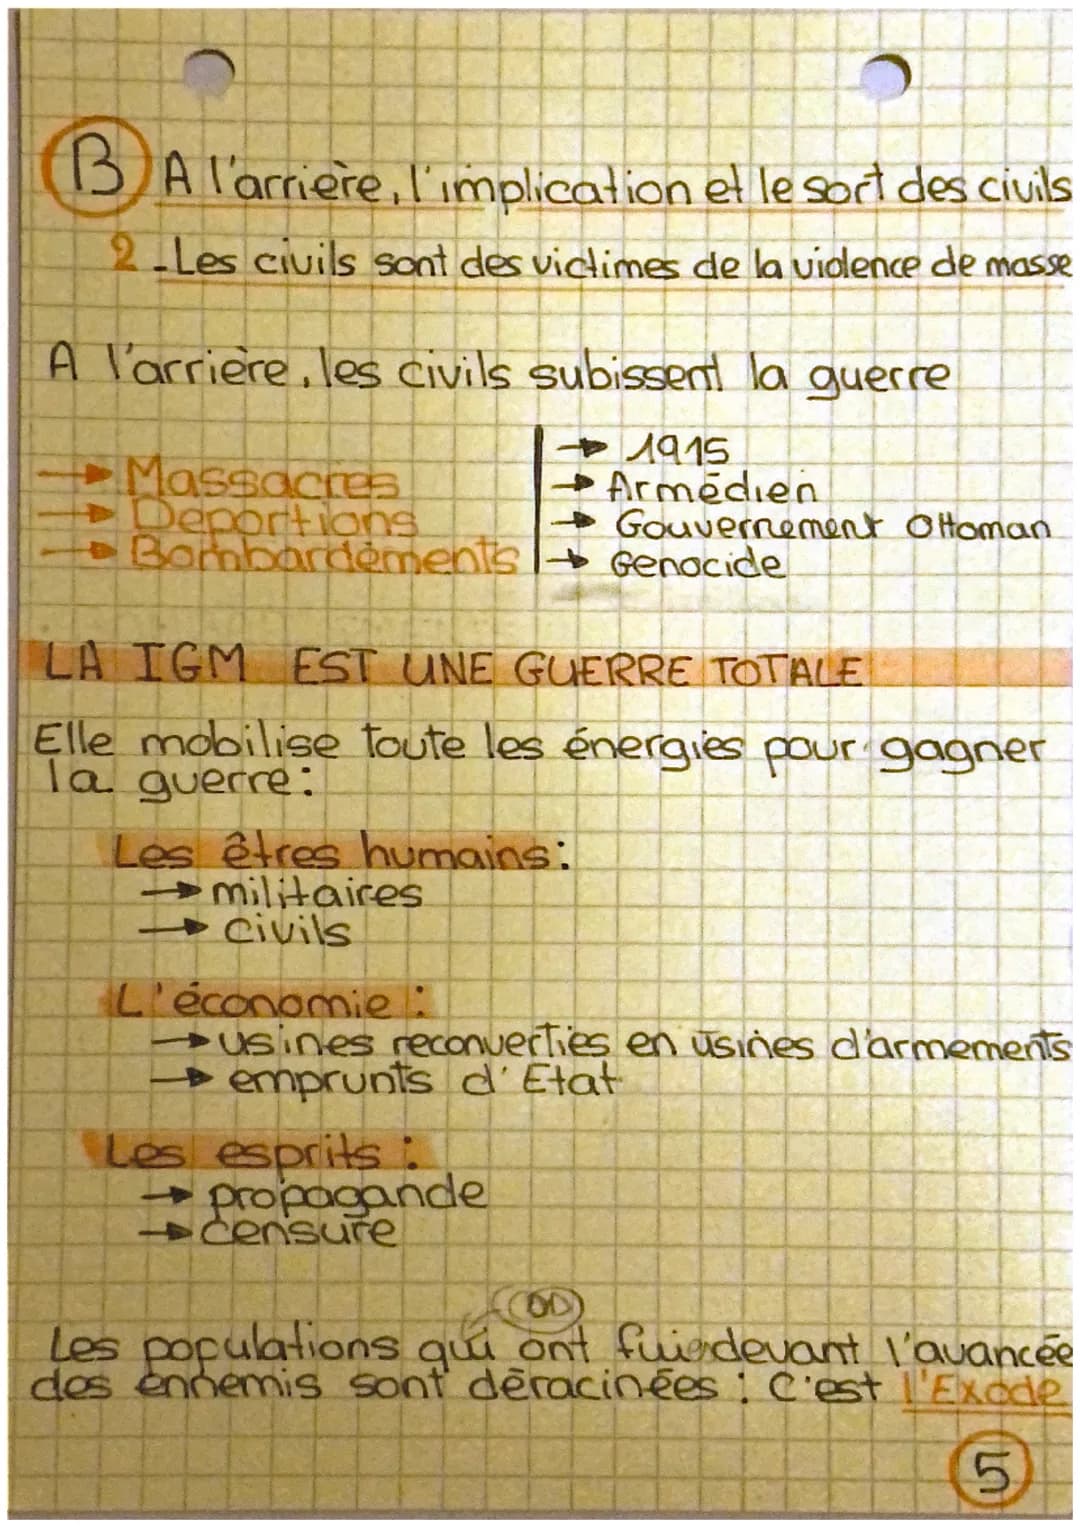 B A l'arrière, l'implication et le sort des civils
2 - Les civils sont des victimes de la violence de masse
A l'arrière, les civils subissent la guerre
→ Massacres
→ Deportions
→ Bombardements
→ 1915
→ Armédien
→ Gouvernement Ottoman
→ Genocide
LA IGM EST UNE GUERRE TOTALE
Elle mobilise toute les énergies pour gagner
la guerre :
Les êtres humains :
→ militaires
→ civils
L'économie :
→ usines reconverties en usines d'armements
→ emprunts d'Etat
Les esprits :
→ propagande
→ censure
Les populations qui ont fui devant l'avancée
des ennemis sont déracinées : C'est l'Exode
5